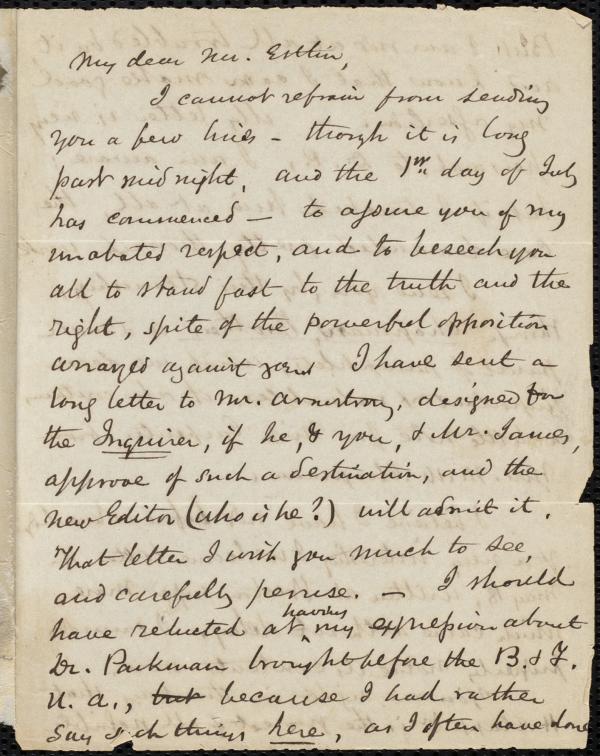 My dear Mr. Estlin,
I cannot refrain from sending
you a few lines - though it is long
past midnight, and the 1st day of July
has commenced — to assure you of my
unabated respect, and to beseech you
all to stand fast to the truth and the
right, spite of the powerful opposition
arrayed against you. I have sent a
long letter to Mr. Armstrong, designed for
the Inquirer, if he, & you, & Mr. James,
approve of such a destination, and the
new Editor (who is he?) will admit it.
That letter I wish you much to see,
and carefully peruse. — I should
have reluctated at having my expression about
Dr. Parkman brought before the B. & F.
U. A., but because I had rather
say such things here, as I often have done